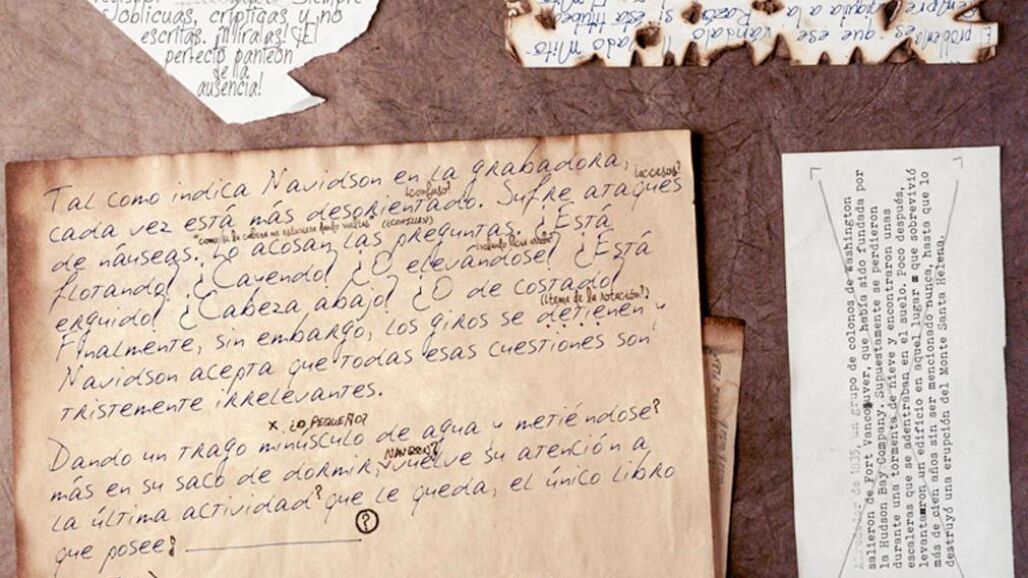 Siempre
oblicuas, crípticas y no
escritas. ¡Miralas! ¡El
perfecto panteón
de la
ausencia!
El problema es que ese vándalo llamado Mito
siempre estrangula a la Razón si ésta titubea
Tal como indica Navidson en la grabadora,
¿confuso? ¿accesos?
cada vez está más desorientado. Sufre ataques
de náuseas. Lo acosan las preguntas. ¿Está
flotando? ¿Cayendo? ¿O elevándose? ¿Está
erguido? ¿Cabeza abajo? ¿O de costado?
(¿tema de la rotación?)
Finalmente, sin embargo, los giros se detienen y
Navidson acepta que todas esas cuestiones son
tristemente irrelevantes.
x ¿O PEQUEÑO?
Dando un trago minúsculo de agua y metiéndose?
más en su saco de dormir, vuelve su atención a
la última actividad? que le queda, el único libro
que posee: ?
Alrededor de 1835, un grupo de colonos de Washington
salieron de Fort Vancouver, que había sido fundada por
la Hudson Bay Company. Supuestamente se perdieron
durante una tormenta de nieve y encontraron unas
escaleras que se adentraban en el suelo. Poco después,
levantaron un edificio en aquel lugar que sobrevivió
más de cien años sin ser mencionado nunca, hasta que lo
destruyó una erupción del Monte Santa Helena.